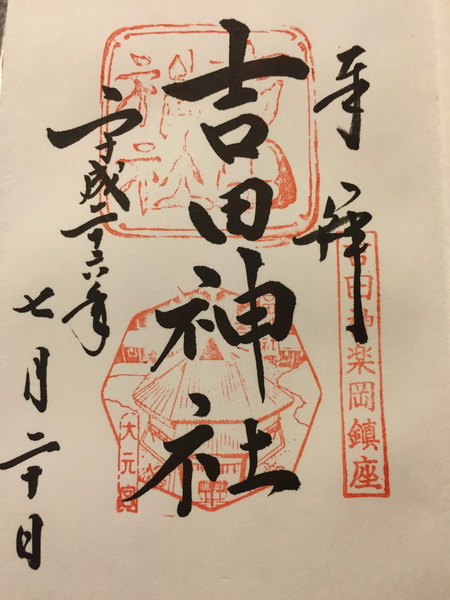 奉拝
吉田神楽岡鎮座
吉田神社
吉田
神社
大元宮
平成二十六年
七月二十日